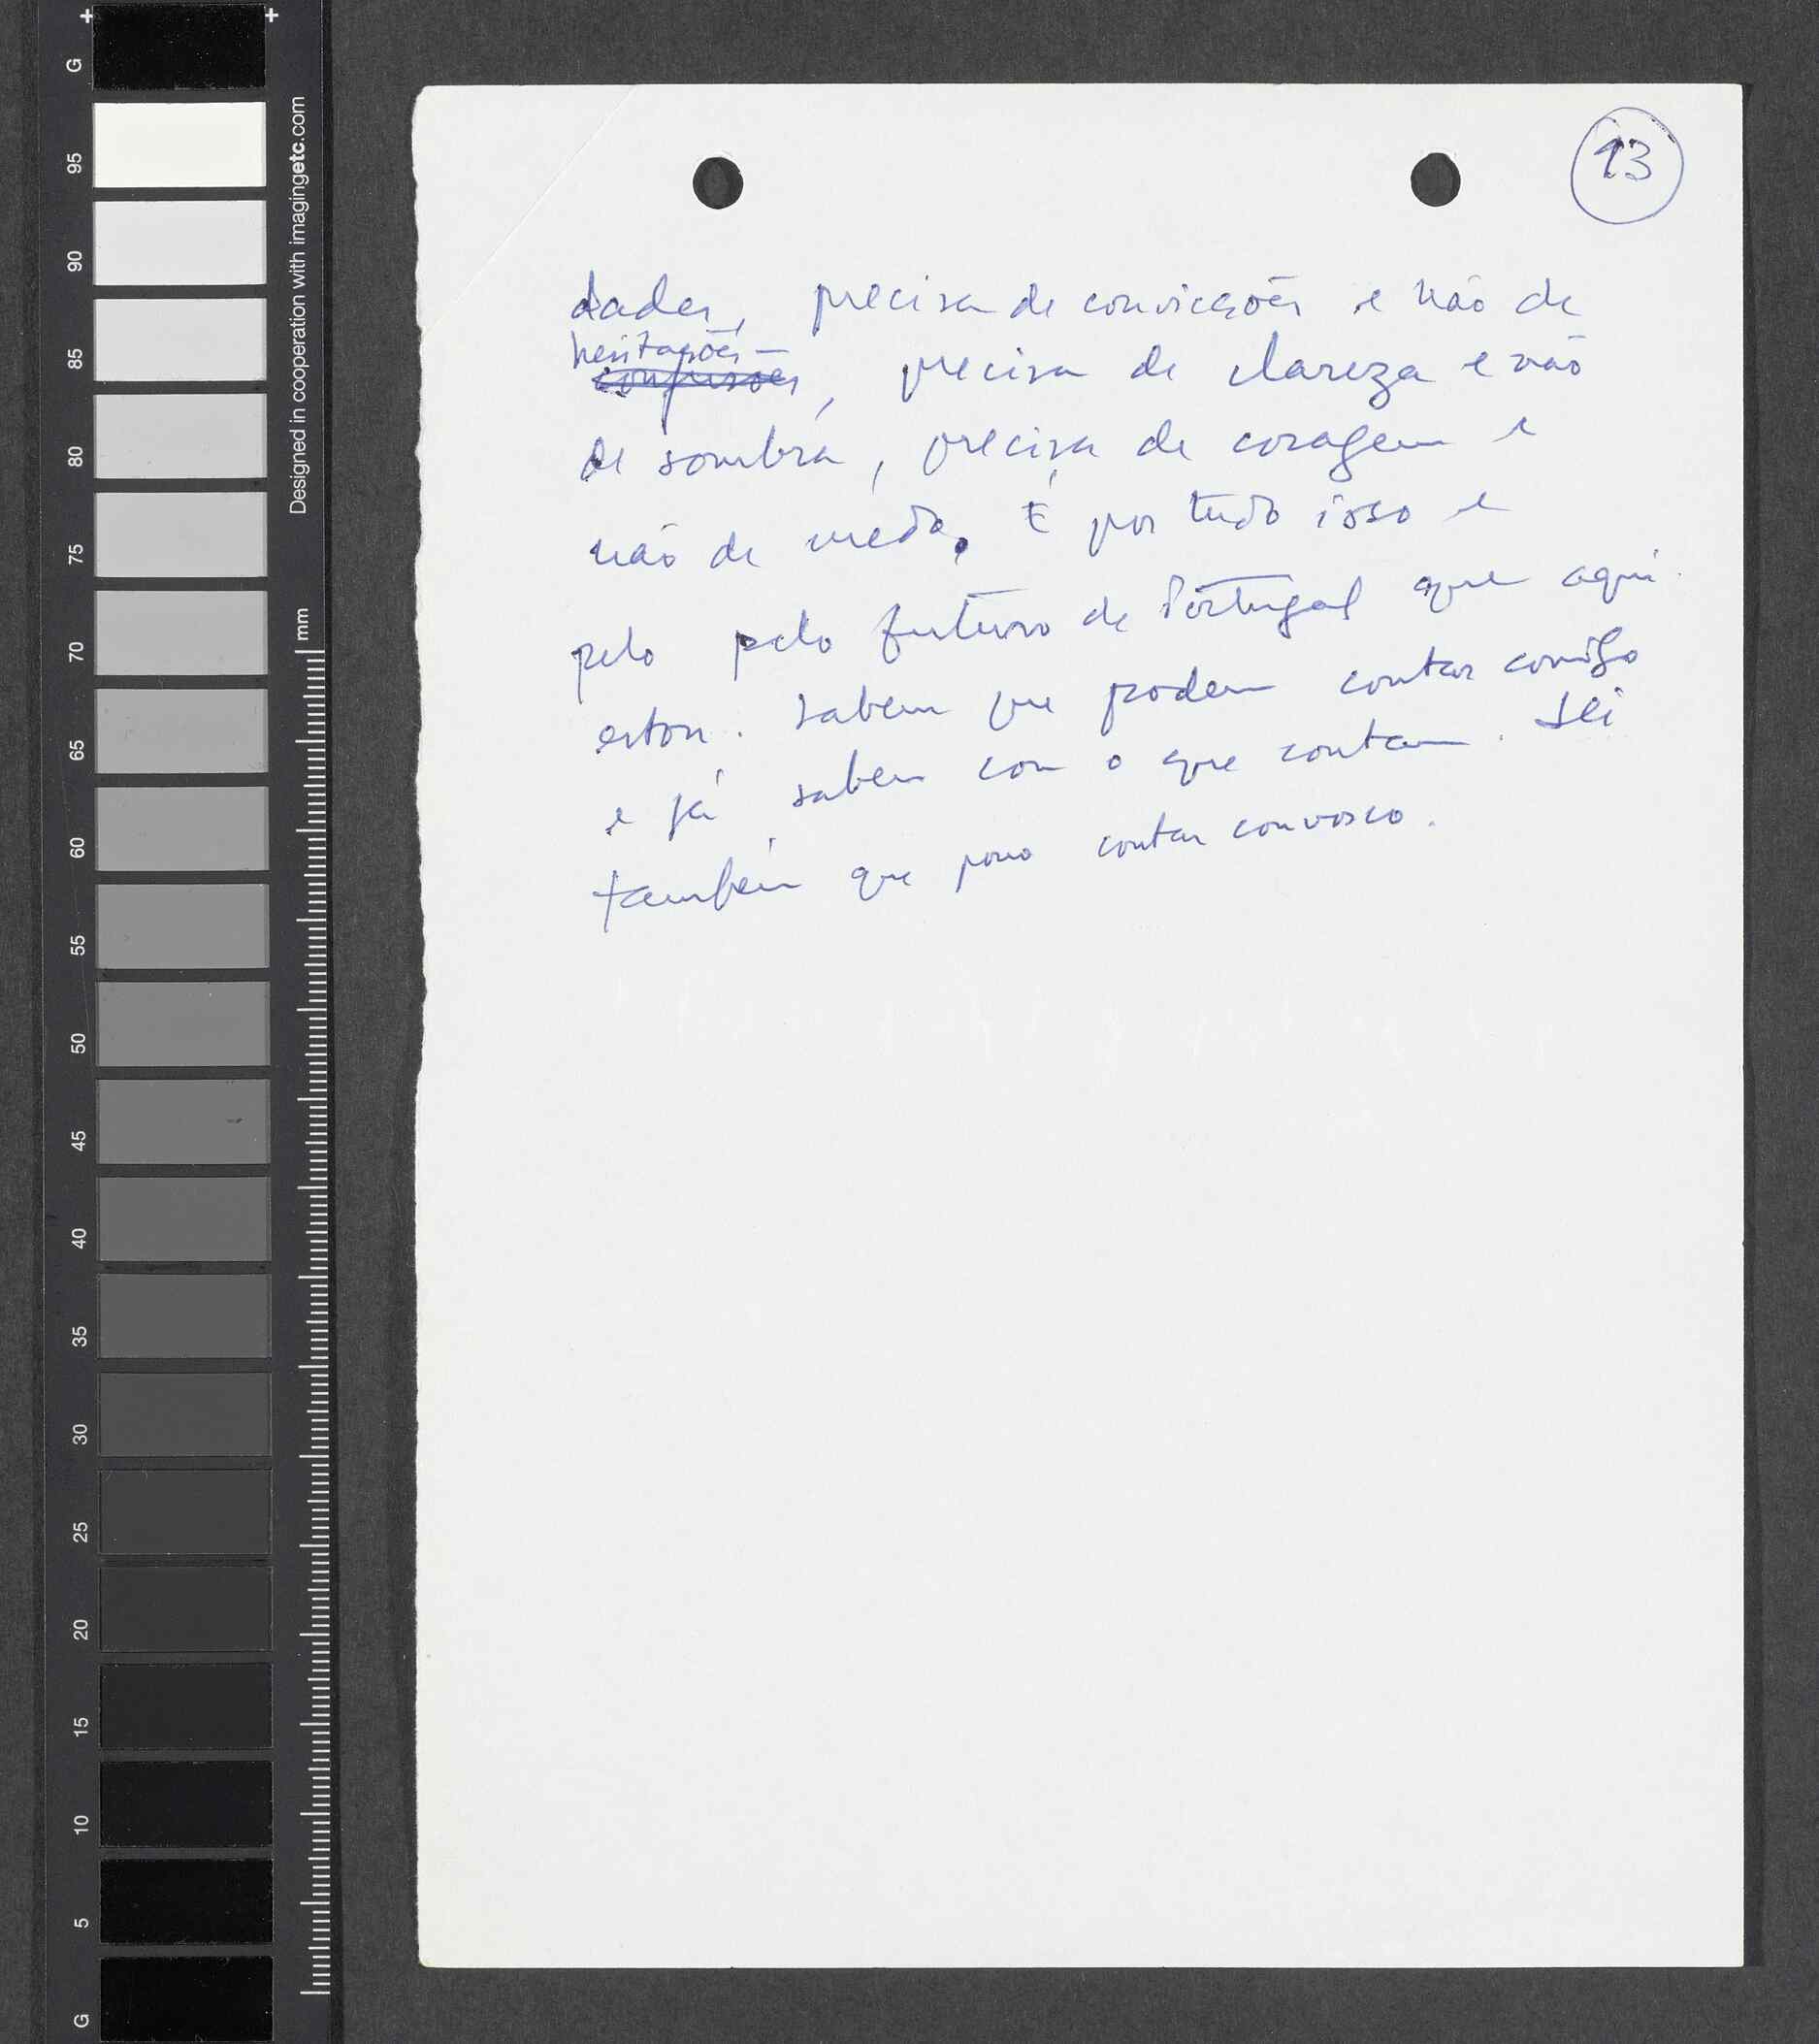 13
dades, precisa de convicções e não de
hesitações
confusões, precisa de clareza e não
de sombra, precisa de coragem e
não de medo. É por tudo isso e
pelo pelo futuro de Portugal que aqui
estou. Sabem que podem contar comigo
e já sabem com o que contam. Sei
também que posso contar convosco.
Designed in cooperation with imagingetc.com
mm
G
95
90
85
80
75
70
65
60
55
50
45
40
35
30
25
20
15
10
5
G